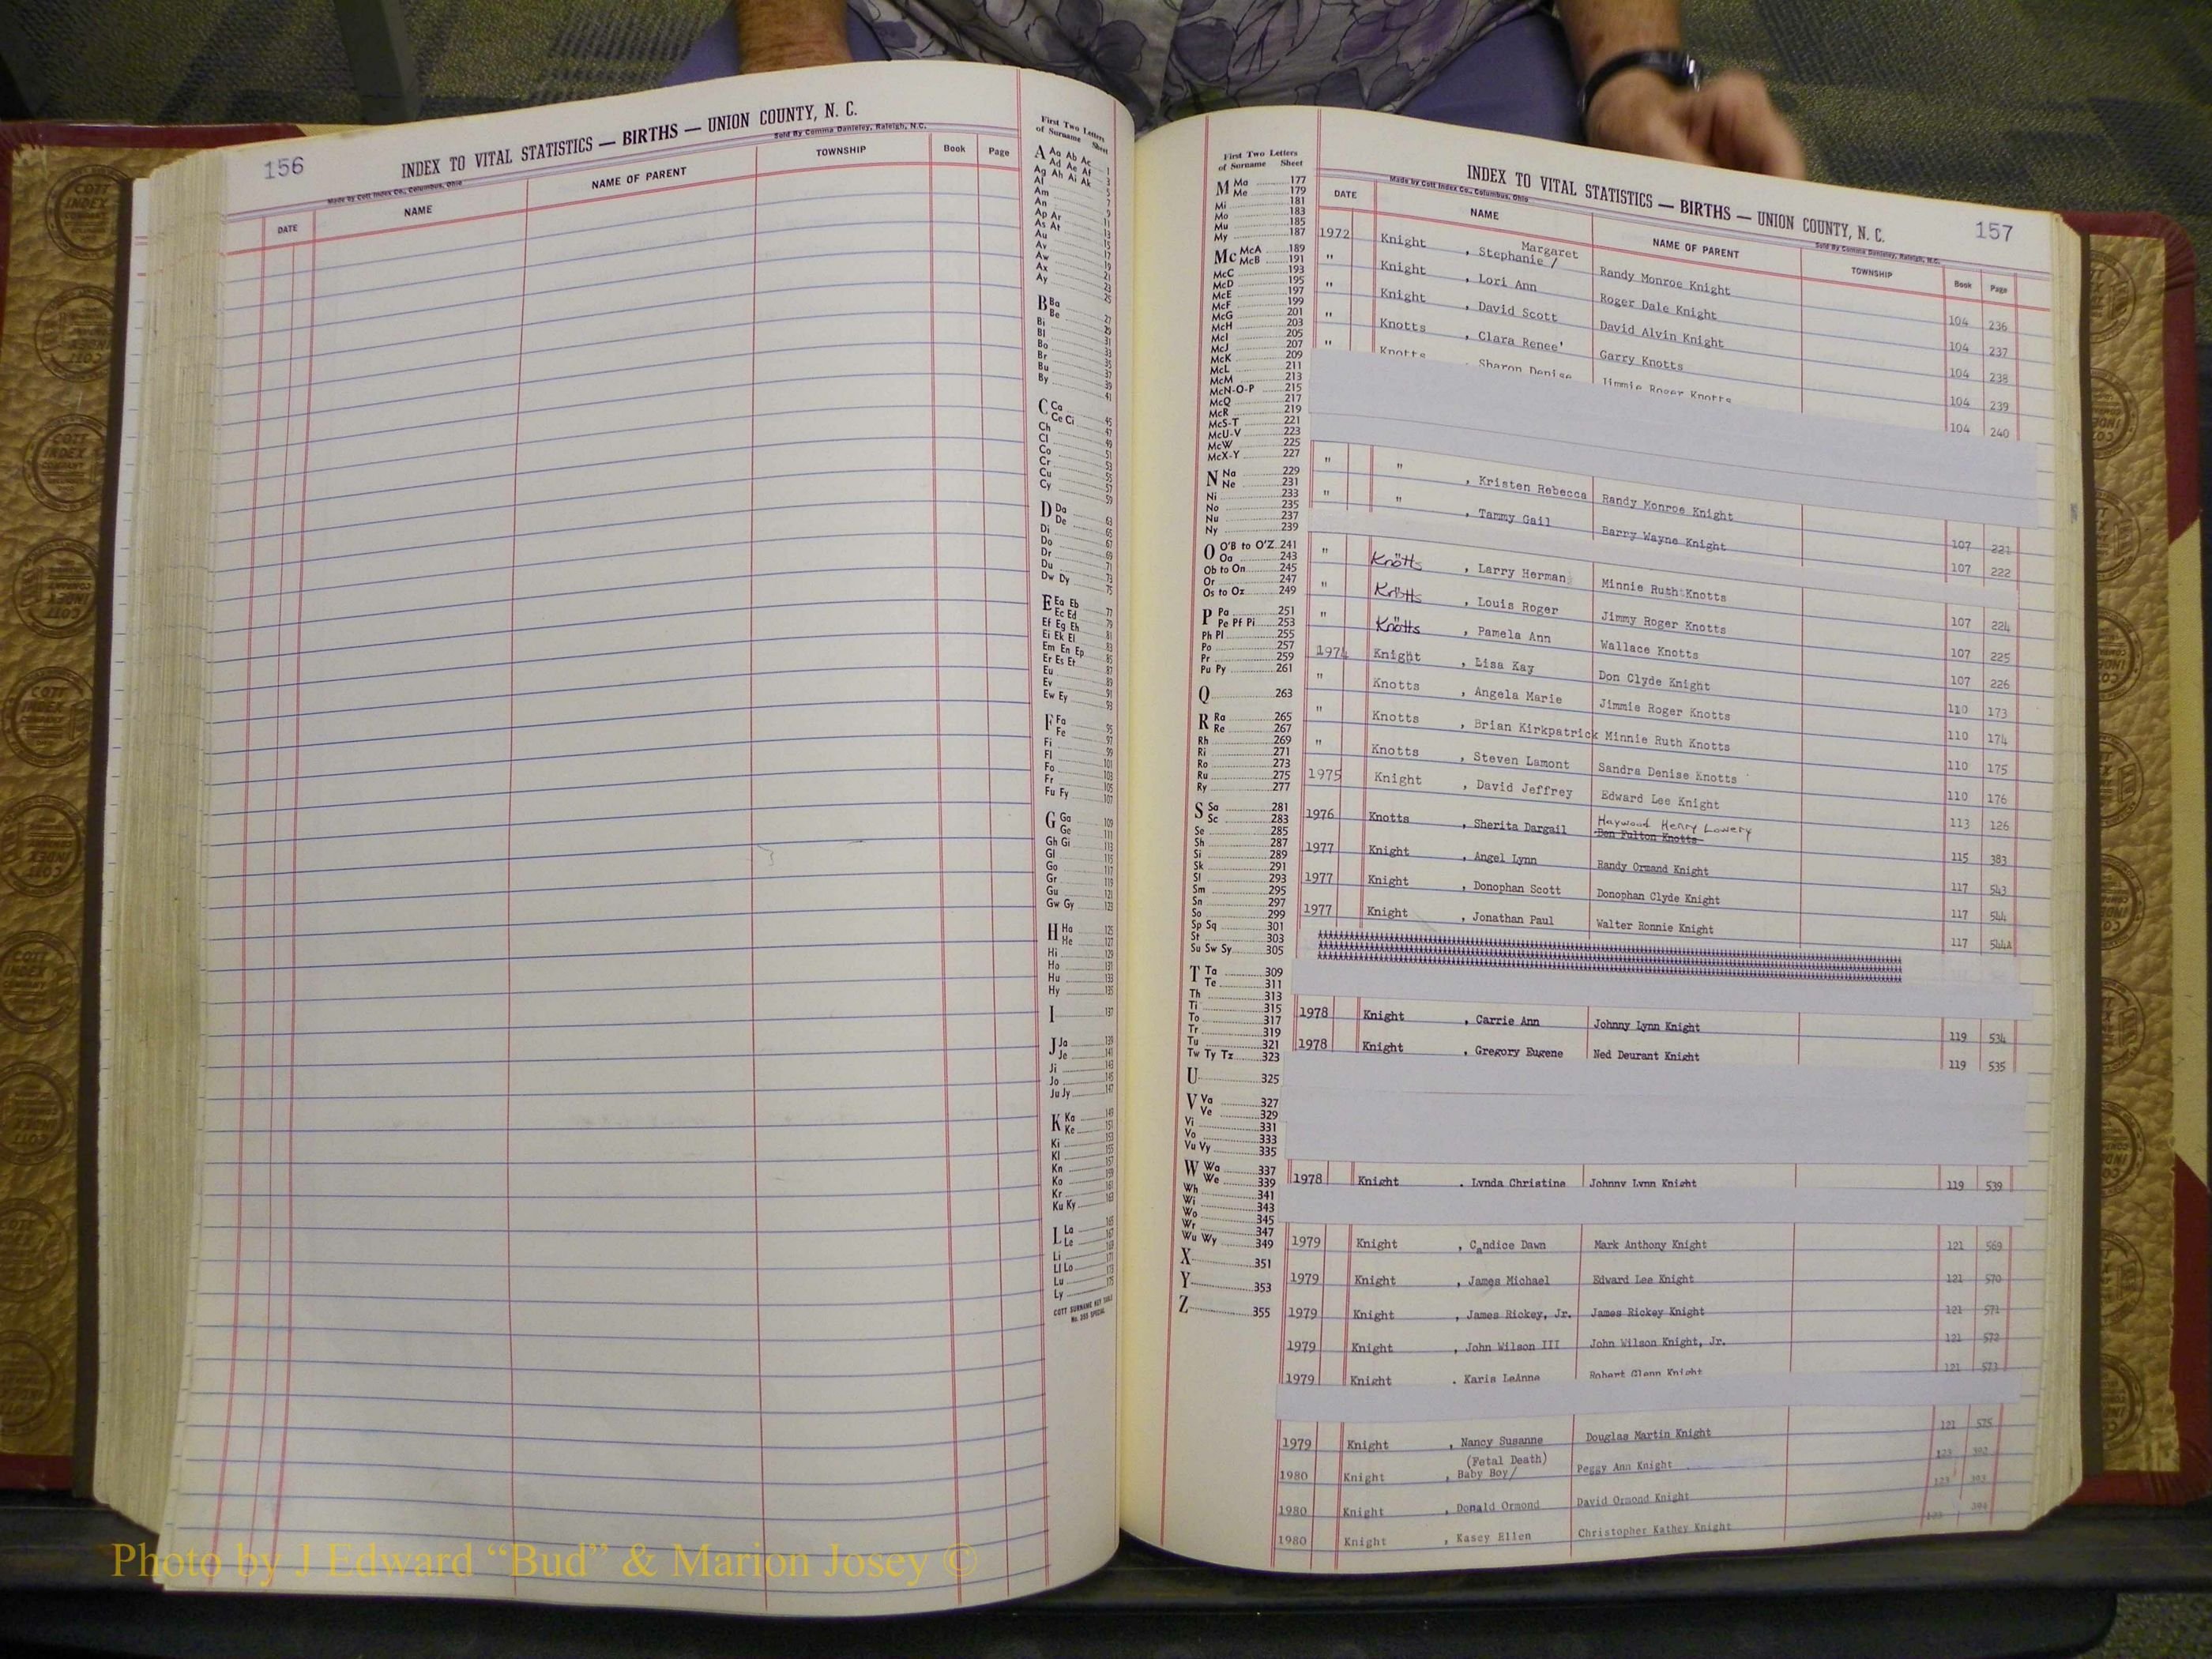 156
INDEX TO VITAL STATISTICS — BIRTHS — UNION COUNTY, N. C.
Made by Cott Index Co., Columbus, Ohio
Sold By Comma Danieley, Raleigh, N.C.
DATE NAME NAME OF PARENT TOWNSHIP Book Page
First Two Letters
of Surname Sheet
A Aa Ab Ac 1
Ad Ae Af 3
Ag Ah Ai Ak 5
Al 7
Am 9
An 11
Ap Ar 13
As At 15
Au 17
Av 19
Aw 21
Ax 23
Ay 25
B Ba 27
Be 29
Bi 31
Bl 33
Bo 35
Br 37
Bu 39
By 41
C Ca 45
Ce Ci 47
Ch 49
Cl 51
Co 53
Cr 55
Cu 57
Cy 59
D Da 63
De 65
Di 67
Do 69
Dr 71
Du 73
Dw Dy 75
E Ea Eb 77
Ec Ed 79
Ef Eg Eh 81
Ei Ek El 83
Em En Ep 85
Er Es Et 87
Eu 89
Ev 91
Ew Ey 93
F Fa 95
Fe 97
Fi 99
Fl 101
Fo 103
Fr 105
Fu Fy 107
G Ga 109
Ge 111
Gh Gi 113
Gl 115
Go 117
Gr 119
Gu 121
Gw Gy 123
H Ha 125
He 127
Hi 129
Ho 131
Hu 133
Hy 135
I 137
J Ja 139
Je 141
Ji 143
Jo 145
Ju Jy 147
K Ka 149
Ke 151
Ki 153
Kl 155
Kn 157
Ko 159
Kr 161
Ku Ky 163
L La 165
Le 169
Li 171
Ll Lo 173
Lu 175
Ly
COTT SURNAME KEY TABLE
No. 355 SPECIAL
First Two Letters
of Surname Sheet
M Ma 177
Me 179
Mi 181
Mo 183
Mu 185
My 187
Mc McA 189
McB 191
McC 193
McD 195
McE 197
McF 199
McG 201
McH 203
McI 205
McJ 207
McK 209
McL 211
McM 213
McN-O-P 215
McQ 217
McR 219
McS-T 221
McU-V 223
McW 225
McX-Y 227
N Na 229
Ne 231
Ni 233
No 235
Nu 237
Ny 239
O O'B to O'Z 241
Oa 243
Ob to On 245
Or 247
Os to Oz 249
P Pa 251
Pe Pf Pi 253
Ph Pl 255
Po 257
Pr 259
Pu Py 261
Q 263
R Ra 265
Re 267
Rh 269
Ri 271
Ro 273
Ru 275
Ry 277
S Sa 281
Sc 283
Se 285
Sh 287
Si 289
Sk 291
Sl 293
Sm 295
Sn 297
So 299
Sp Sq 301
St 303
Su Sw Sy 305
T Ta 309
Te 311
Th 313
Ti 315
To 317
Tr 319
Tu 321
Tw Ty Tz 323
U 325
V Va 327
Ve 329
Vi 331
Vo 333
Vu Vy 335
W Wa 337
We 339
Wh 341
Wi 343
Wo 345
Wr 347
Wu Wy 349
X 351
Y 353
Z 355
INDEX TO VITAL STATISTICS — BIRTHS — UNION COUNTY, N. C. 157
Made by Cott Index Co., Columbus, Ohio
Sold By Comma Danieley, Raleigh, N.C.
DATE NAME NAME OF PARENT TOWNSHIP Book Page
1972 Knight , Stephanie / Margaret Randy Monroe Knight 104 236
" Knight , Lori Ann Roger Dale Knight 104 237
" Knight , David Scott David Alvin Knight 104 238
" Knotts , Clara Renee' Garry Knotts 104 239
" Knotts , Sharon Denise Jimmie Roger Knotts 104 240
" " , Kristen Rebecca Randy Monroe Knight 107 221
" " , Tammy Gail Barry Wayne Knight 107 222
" Knotts , Larry Herman Minnie Ruth Knotts 107 224
" Knotts , Louis Roger Jimmy Roger Knotts 107 225
" Knotts , Pamela Ann Wallace Knotts 107 226
1974 Knight , Lisa Kay Don Clyde Knight 110 173
" Knotts , Angela Marie Jimmie Roger Knotts 110 174
" Knotts , Brian Kirkpatrick Minnie Ruth Knotts 110 175
" Knotts , Steven Lamont Sandra Denise Knotts 110 176
1975 Knight , David Jeffrey Edward Lee Knight 113 126
1976 Knotts , Sherita Dargail Haywood Henry Lowery Ben Fulton Knotts 115 383
1977 Knight , Angel Lynn Randy Ormand Knight 117 543
1977 Knight , Donophan Scott Donophan Clyde Knight 117 544
1977 Knight , Jonathan Paul Walter Ronnie Knight 117 544A
1978 Knight , Carrie Ann Johnny Lynn Knight 119 534
1978 Knight , Gregory Eugene Ned Deurant Knight 119 535
1978 Knight , Lynda Christine Johnny Lynn Knight 119 539
1979 Knight , Candice Dawn Mark Anthony Knight 121 569
1979 Knight , James Michael Edward Lee Knight 121 570
1979 Knight , James Rickey, Jr. James Rickey Knight 121 571
1979 Knight , John Wilson III John Wilson Knight, Jr. 121 572
1979 Knight , Karis LeAnne Robert Glenn Knight 121 573
1979 Knight , Nancy Susanne Douglas Martin Knight 121 575
1980 Knight , Baby Boy/ (Fetal Death) Peggy Ann Knight 123 392
1980 Knight , Donald Ormond David Ormond Knight 123 393
1980 Knight , Kasey Ellen Christopher Kathey Knight 123 394
Photo by J Edward “Bud” & Marion Josey ©